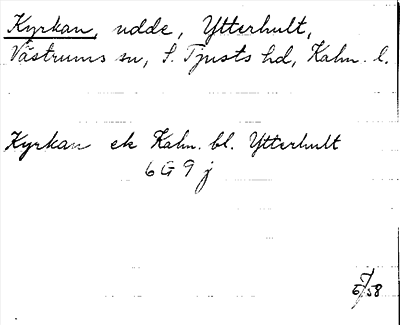 Kyrkan, udde, Ytterhult,
Västrums sn, S. Tjusts hd, Kalm. l.
Kyrkan ek Kalm. bl. Ytterhult
6 G 9 j